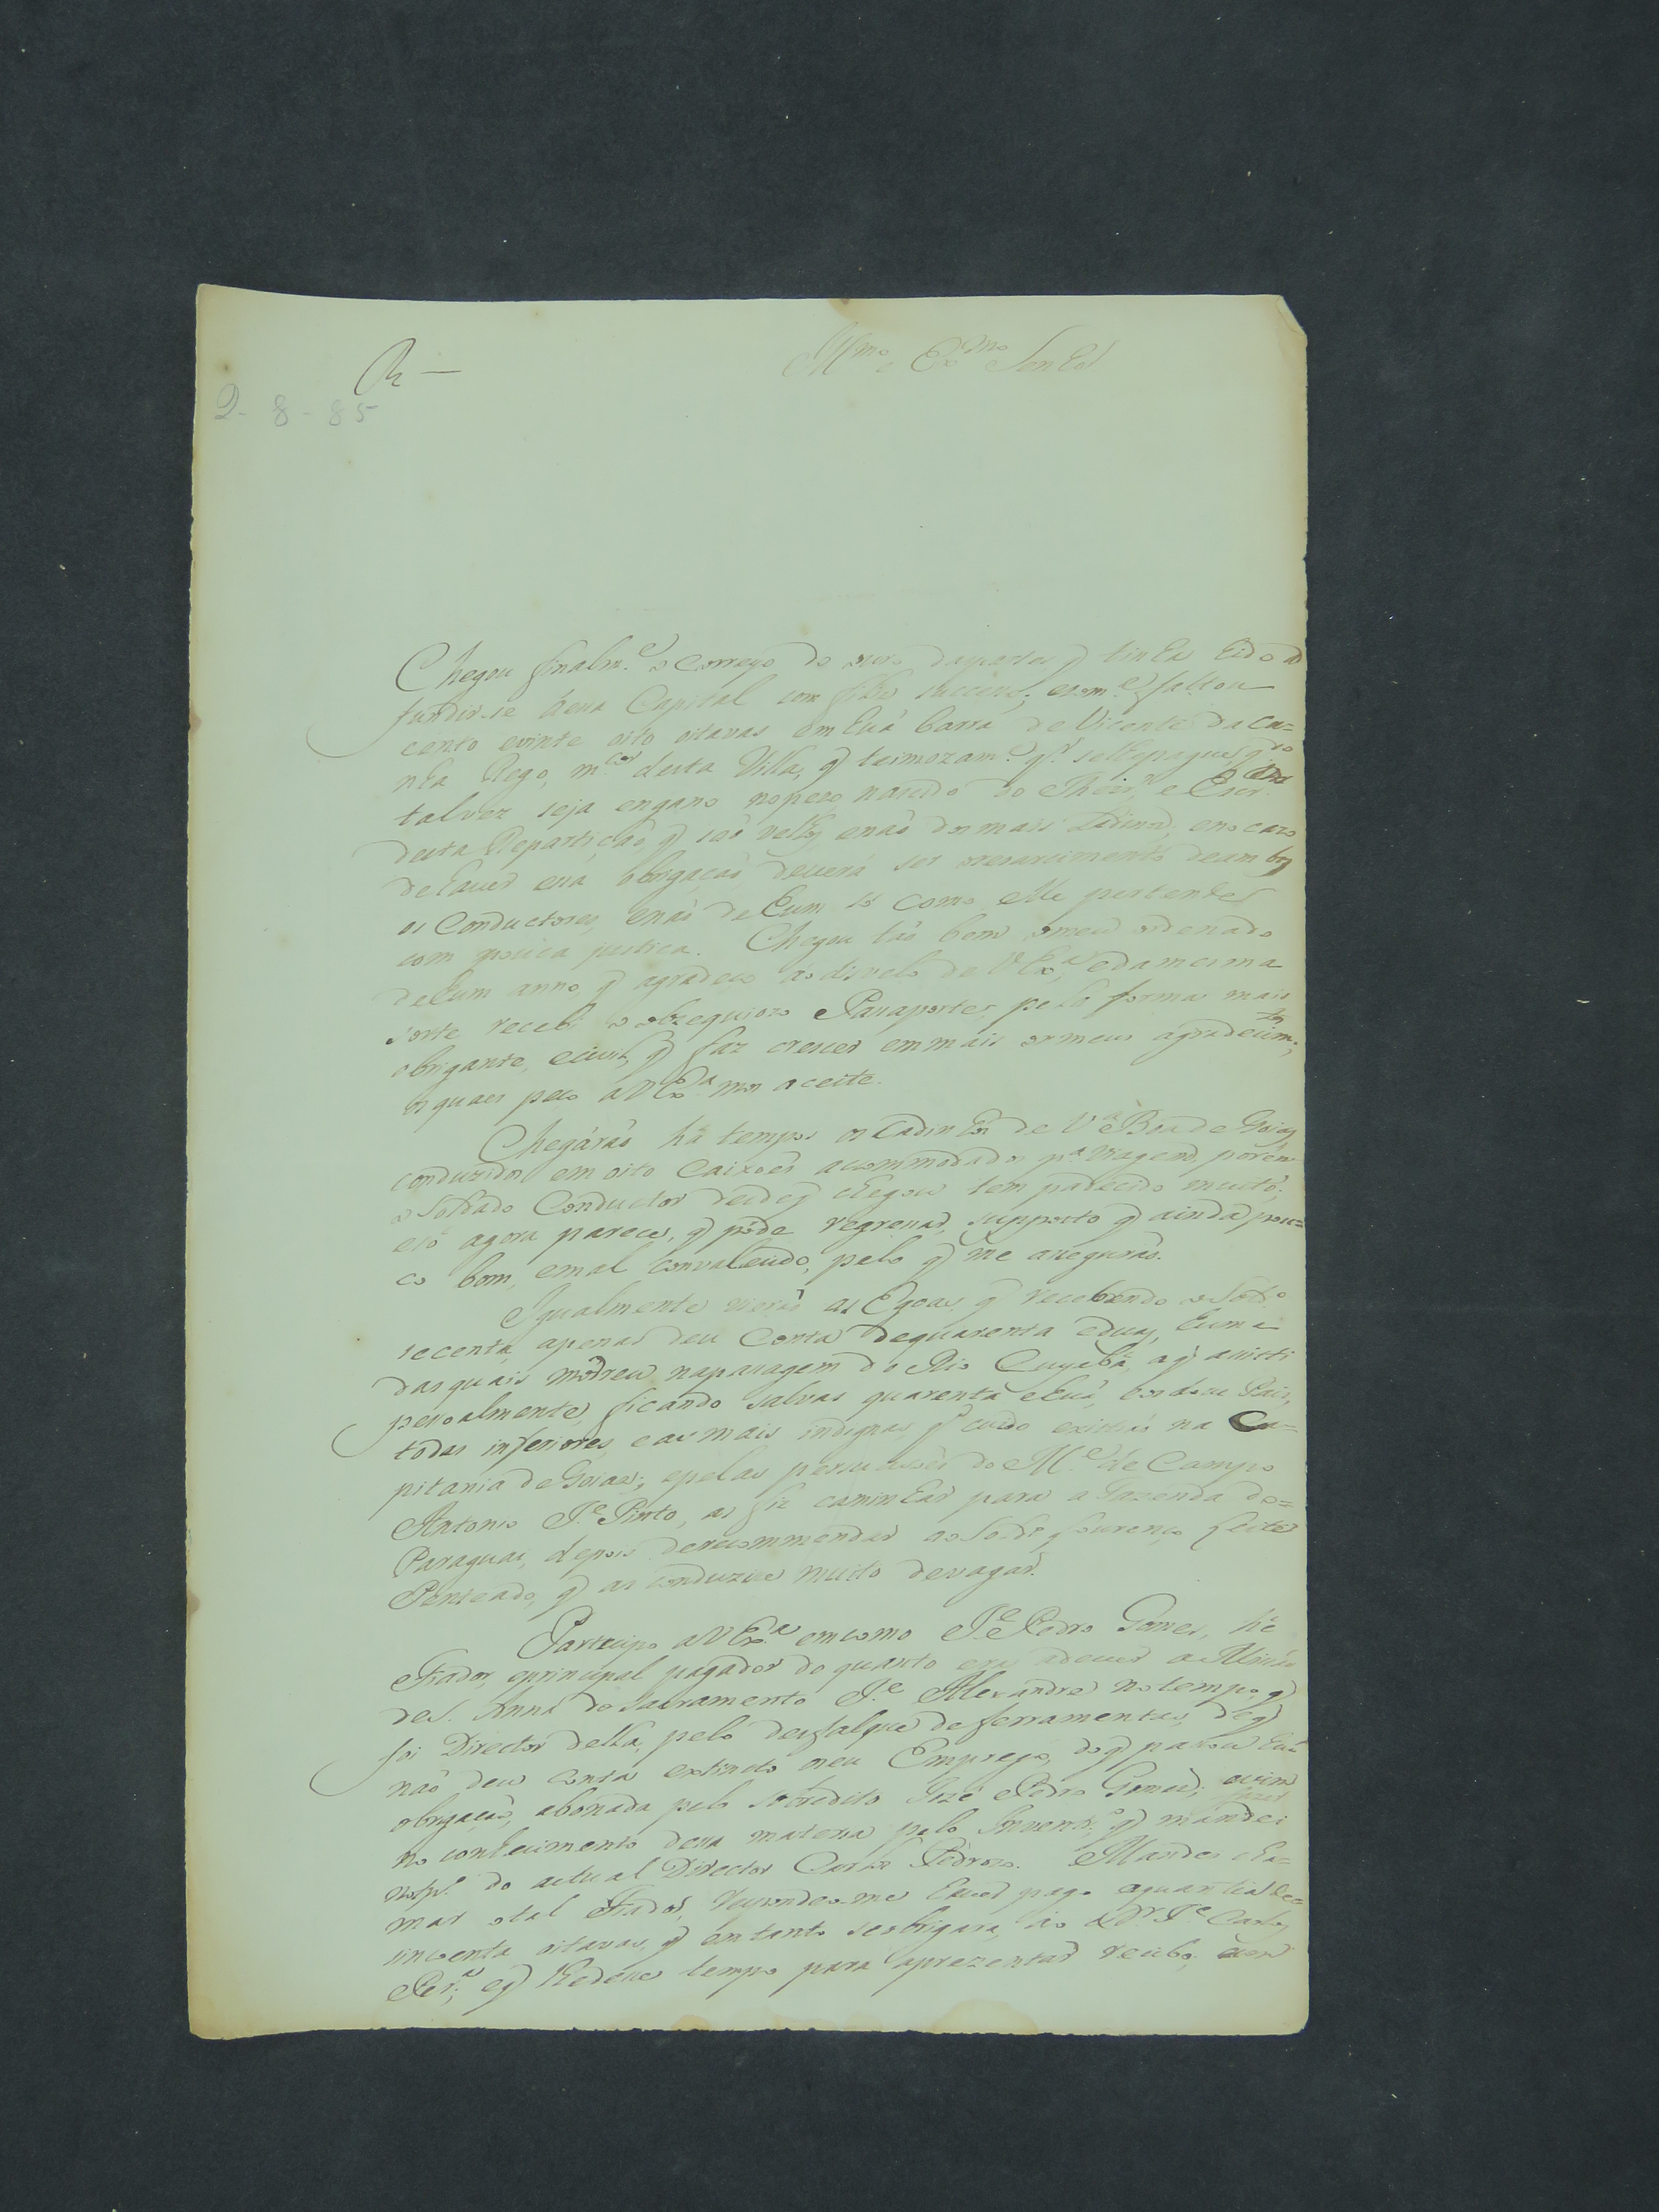 R —
Illmo e Exmo Senhor
2 - 8 - 85
Chegou finalm.e o correyo do ouro daspartes q tinha hido a
fundir-se á essa Capital com feliz successo; e som.e faltou
cento evinte oito oitavas em huã barra de Vicente da Cu=
nha Rego, m.or desta Villa, q teimozam.e q.r selhepague, q.do
talvez seja engano nopezo, nascido do Thezr.o e Escr.am
desta Repartiçaõ q saõ velhos, enaõ dos mais Ladinos, eno cazo
dehaver essa obrigaçaõ, deverá ser oresarcimento deambos
os Conductores, enaõ dehum só como elle pertende
com pouca justica. Chegou taõ bem omeu ordenado
dehum anno, q agradeco ao disvelo de V Ex.a, edamesma
sorte recebi o obzequiozo Passaporte, pela forma mais
obrigante, ecivil, q faz crescer emmais osmeus agradecim.tos;
os quaes peço a V Ex.a mos aceite.
Chegáraõ há tempos os Cadinhos de V.a Boa de Goias
conduzidos em oito Caixoẽs acommodados p.a viagem, porém
o Soldado Conductor desdeq chegou tem padecido muito:
esó agora parece, q póde regressar, supposto q ainda pou=
co bom, emal convalecido, pelo q me aseguraõ.
Igualmente vieraõ as Egoas, q recebendo o Sold.o
secenta, apenas deu Conta dequarenta eduas, huma
das quais morreu napassagem do Rio Cuyabá, aq assisti
pessoalmente, ficando salvas quarenta ehuã, edous Pais,
todas inferiores, e as mais indignas, q cuido existiaõ na Ca=
pitania de Goias; epelas persuasoẽs do M.e de Campo
Antonio J.e Pinto, as fiz caminhar para a Fazenda do=
Paraguai, depois derecommendar ao Sold.o Lourenço Leite
Penteado, q as conduzisse muito devagar.
Participo a V Ex.a emcomo J.e Pedro Gomes, hé
Fiador, eprincipal pagador do quanto
de S. Anna do Sacramento J.e Alexandre notempo, q
foi Director della, pelo desfalque de ferramentas, deq
naõ deu conta extincto oseu Emprego, doq passou huã
obrigaçaõ, abonada pelo sobredito Jozé Pedro Gomes;
no conhecimento dessa materia pelo Invent.o q mandei fazer
do actual Director Carlos Pedrozo. Mandei cha=
mar otal Fiador, respondeo-me haver pago aquantia de=
sincoenta oitavas, q emtanto seobrigara, ao D.r J.e Carlos
Per.a; eq lhedésse tempo para aprezentar recibo;